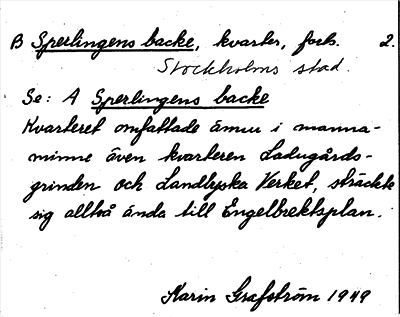 B Sperlingens backe, kvarter, forts. 2.
Stockholms stad.
Se: A Sperlingens backe
Kvarteret omfattade ännu i manna-
minne även kvarteren Ladugårds-
grinden och Landtyska Verket, sträckte
sig alltså ända till Engelbrektsplan.
Karin Grafström 1949